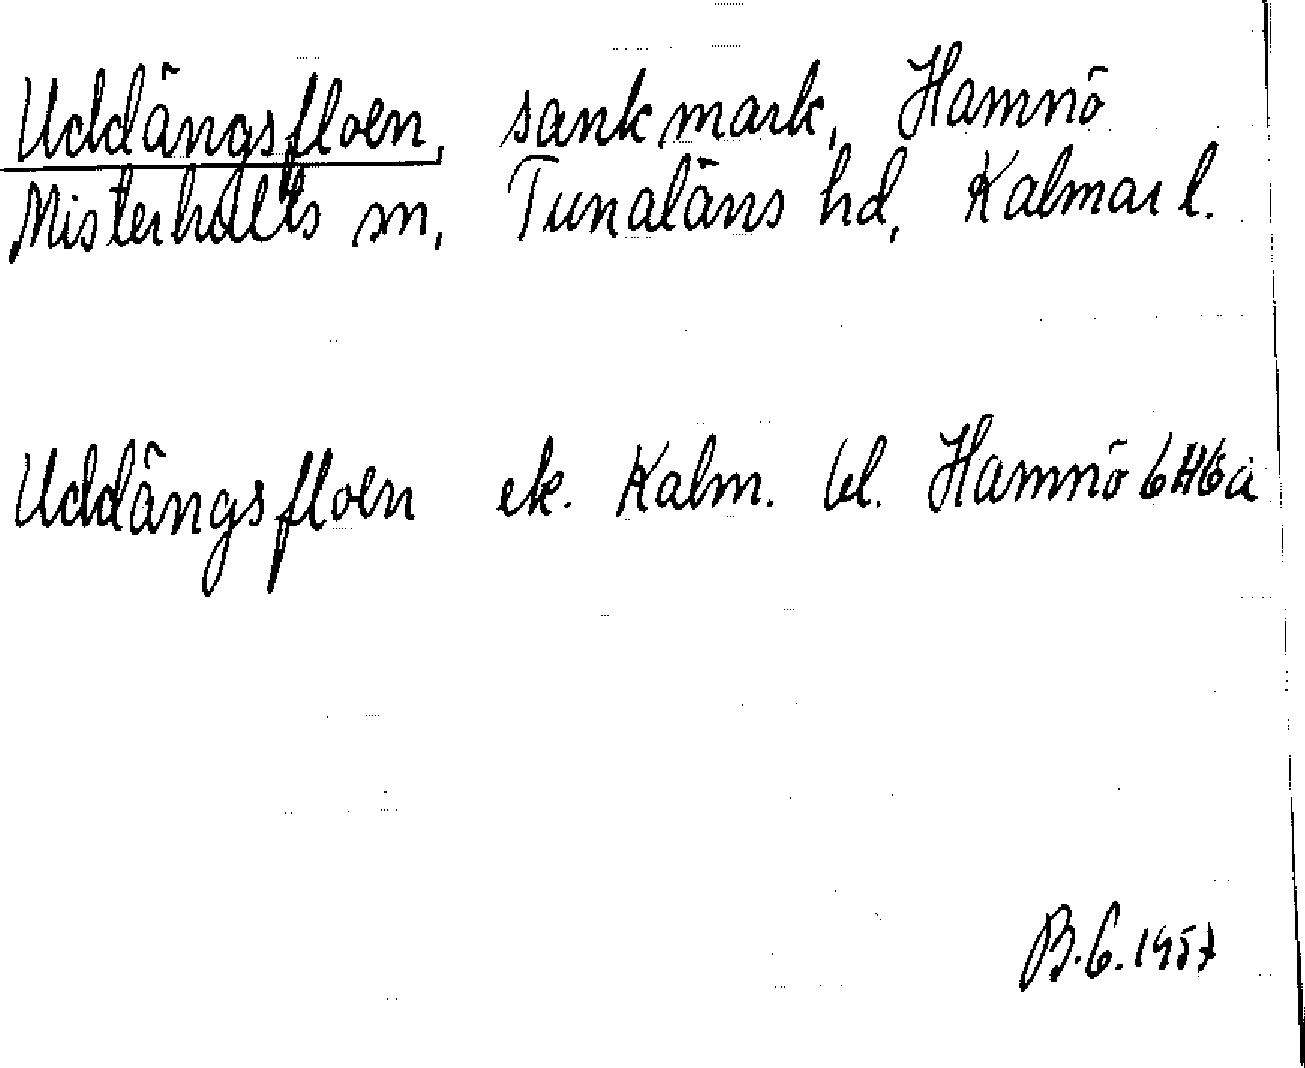 Uddängsfloen, sank mark, Hamnö
Misterhults sn, Tunaläns hd, Kalmar l.
Uddängsfloen ek. Kalm. bl. Hamnö 6H6a
B.G. 1957